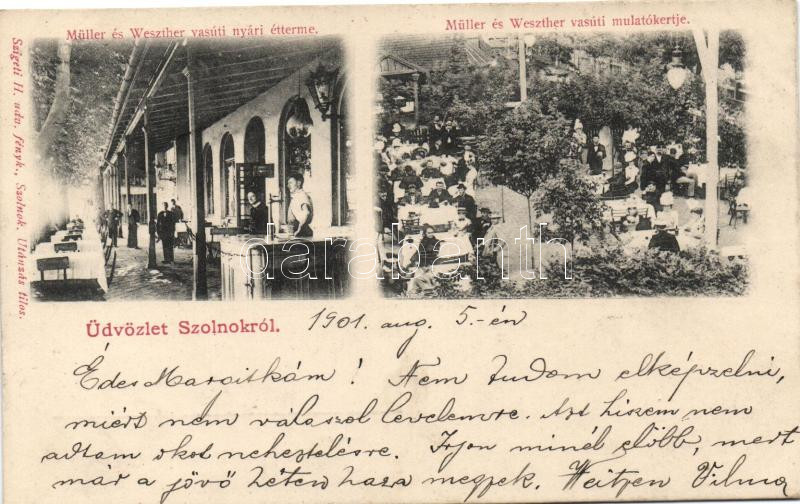 Müller és Weszther vasúti nyári étterme.
Müller és Weszther vasúti mulatókertje.
Szigeti H. udv. fényk., Szolnok. Utánzás tilos.
darabanth
Üdvözlet Szolnokról.
1901. aug. 5.-én
Édes Margitkám! Nem tudom elképzelni,
miért nem válaszol levelemre. Azt hiszem nem
adtam okot neheztelésre. Irjon minél előbb, mert
már a jövő héten haza megyek. Weitzen Vilma